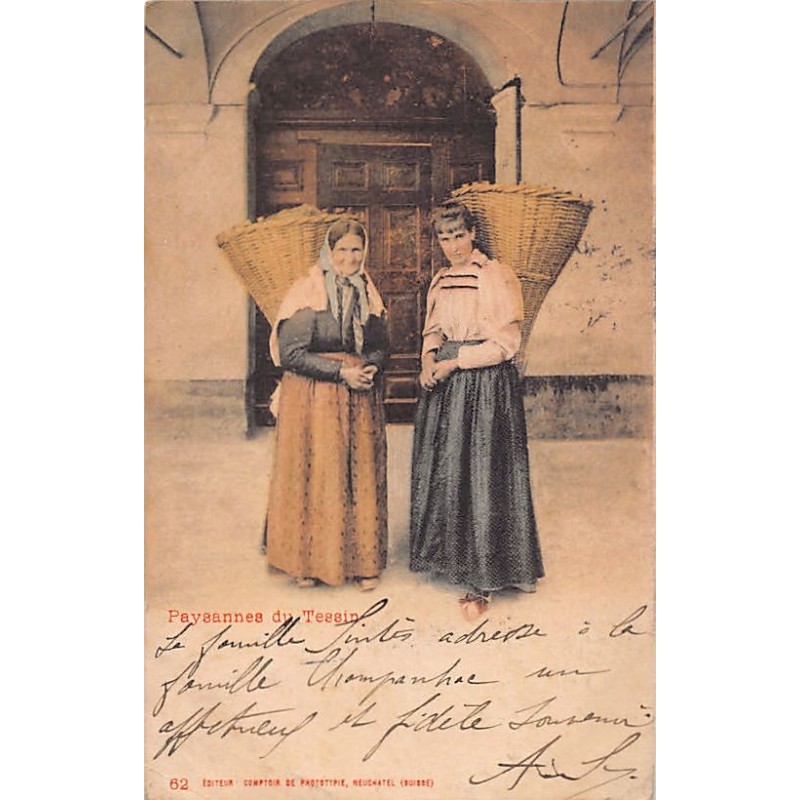 Paysannes du Tessin
La famille Sintès adresse à la
famille Champanhac un
affectueux et fidèle souvenir
A. S.
62 ÉDITEUR COMPTOIR DE PHOTOTYPIE, NEUCHATEL (SUISSE)